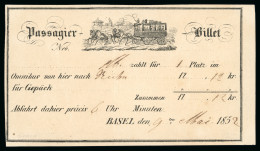 Passagier- Billet
Nro.
zahlt für 1 Platz im
Omnibus von hier nach Riehen fl. 12 kr
für Gepäck " "
Zusammen fl. 12 kr
Abfahrt daher präcis 6 Uhr Minuten.
BASEL den 9 Mai 1852